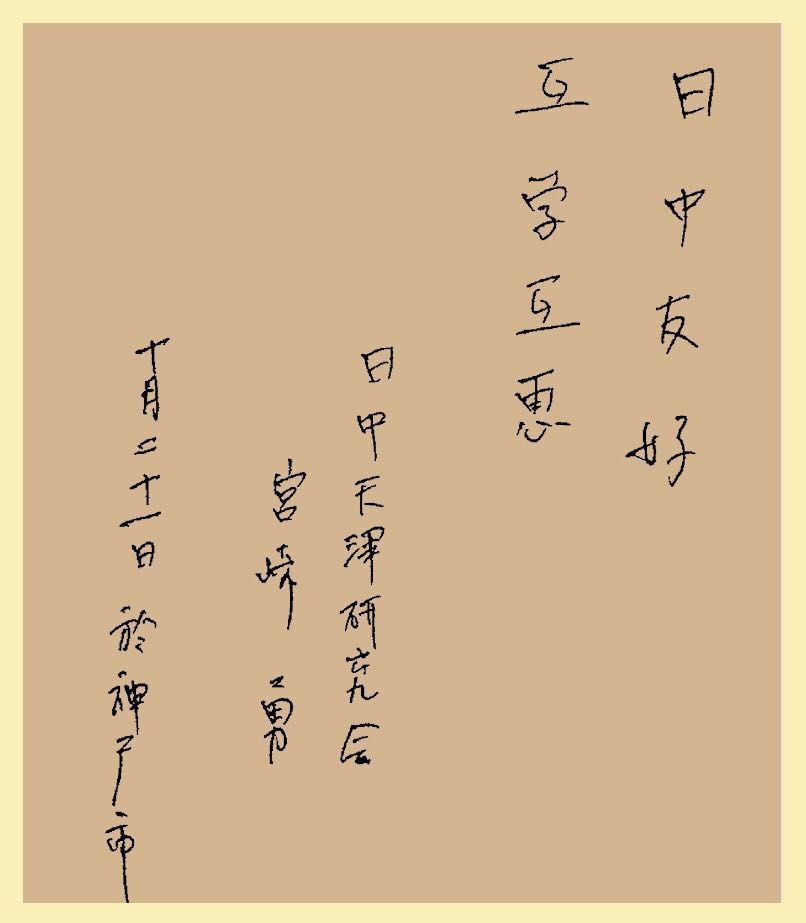 日中友好
互学互恵
日中天津研究会
宮崎 勇
十月二十一日 於神戸市